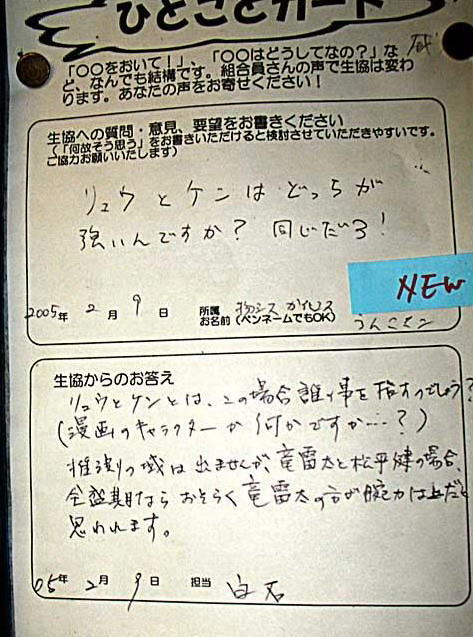 ひとことカード
「〇〇をおいて！」、「〇〇はどうしてなの？」な
ど、なんでも結構です。組合員さんの声で生協は変わ
ります。あなたの声をお寄せください！
生協への質問・意見、要望をお書きください
（「何故そう思う」をお書きいただけると検討させていただきやすいです。
ご協力お願いいたします）
リュウとケンはどっちが
強いんですか？ 同じだろ！
NEW
2005年 2月 9日 所属
お名前（ペンネームでもOK）
生協からのお答え
リュウとケンとは、この場合誰の事を指すのでしょう？
（漫画のキャラクターか何かですか…？）
推測の域は出ませんが、竜雷太と松平健の場合、
全盛期ならおそらく竜雷太の方が腕力は上だと
思われます。
05年 2月 9日 担当 白石